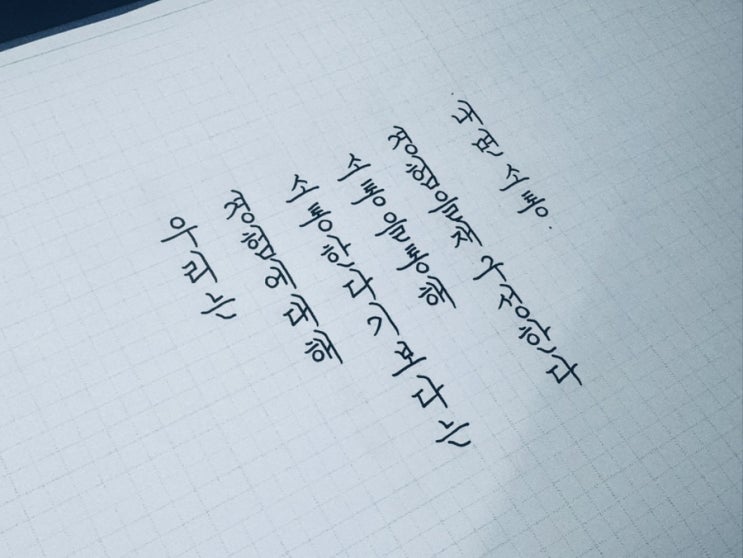 우리는
경험에 대해
소통한다기보다는
소통을 통해
경험을 재구성한다
내면소통